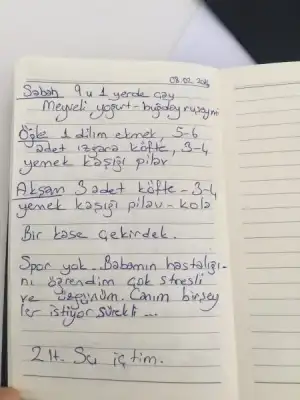 08.02.2016
Sabah 9 u 1 yerde çay
Meyveli yoğurt - buğday ruşeymi
Öğle 1 dilim ekmek, 5-6
adet ızgara köfte, 3-4
yemek kaşığı pilav
Akşam 3 adet köfte - 3-4
yemek kaşığı pilav - kola
Bir kase çekirdek.
Spor yok. Babamın hastalığı-
nı öğrendim çok stresli
ve üzgünüm. Canım birşey
ler istiyor sürekli...
2 lt. Su içtim.